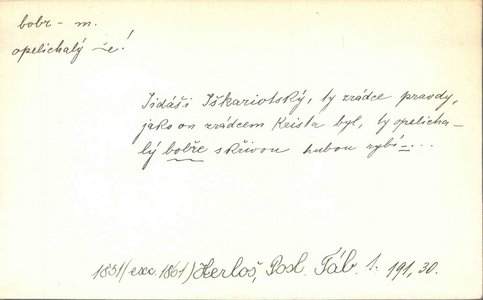 bobr - m.
opelichalý -e!
Jidáši Iškariotský, ty zrádce pravdy,
jako on zrádcem Krista byl, ty opelicha-
lý bobře s křivou hubou rybí-...
1851 (exc. 1861) Herloš, Posl. Táb. 1. 191, 30.